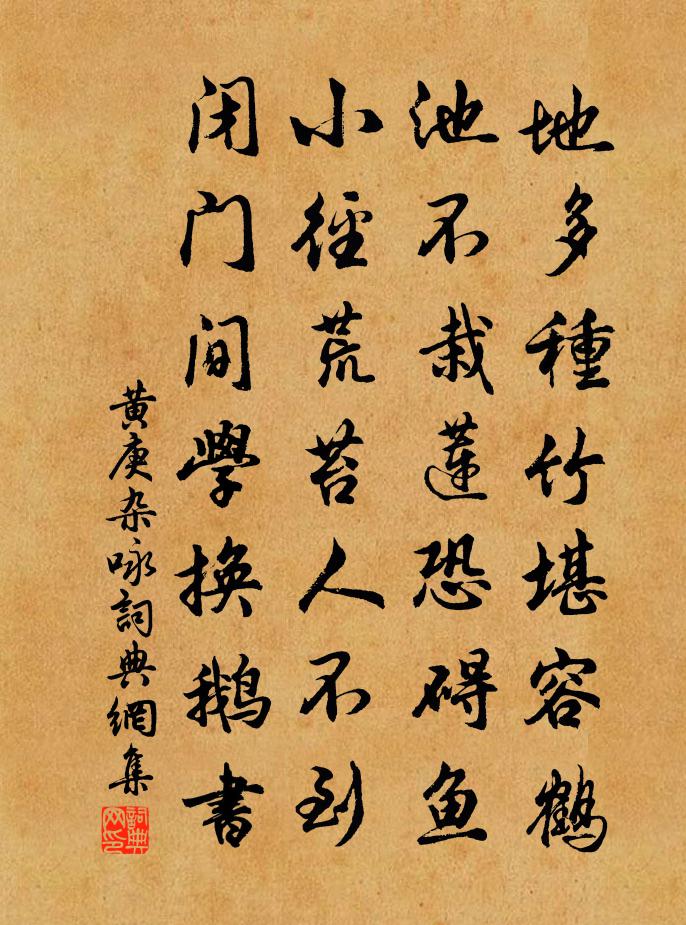 地多種竹堪容鶴
池不栽蓮恐碍鱼
小徑荒苔人不到
闭门閒學换鵝書
黄庚杂咏詞典網集
詞典网印